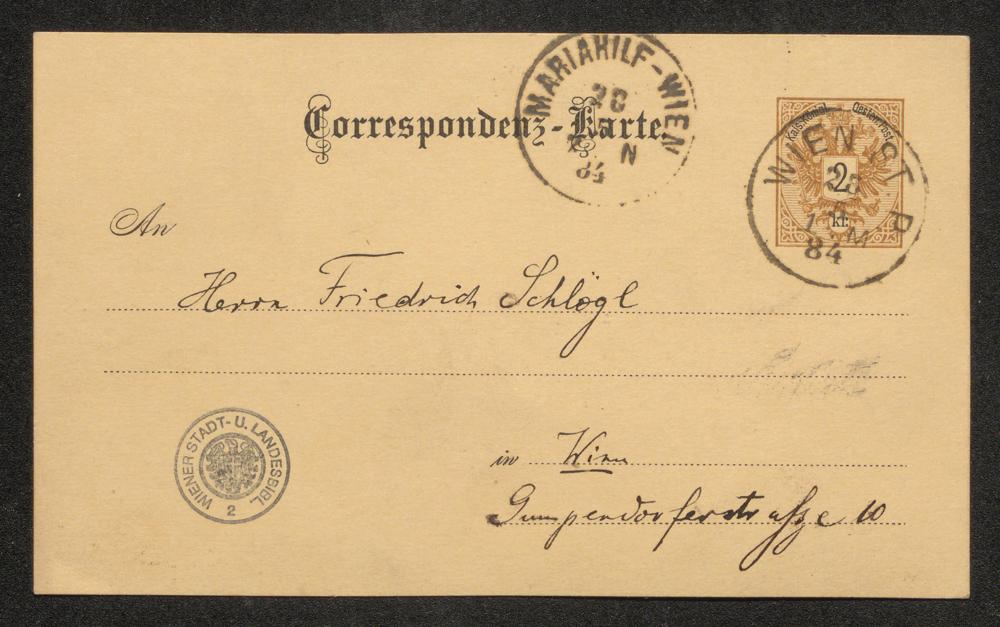 Correspondenz-Karte
MARIAHILF-WIEN
28
N
84
Kais. Königl. Oesterr. Post
2
kr.
WIEN ST. P.
28
1 M
84
An
Herrn Friedrich Schlögl
in Wien
Gumpendorferstrasse 10
WIENER STADT- U. LANDESBIBL.
2